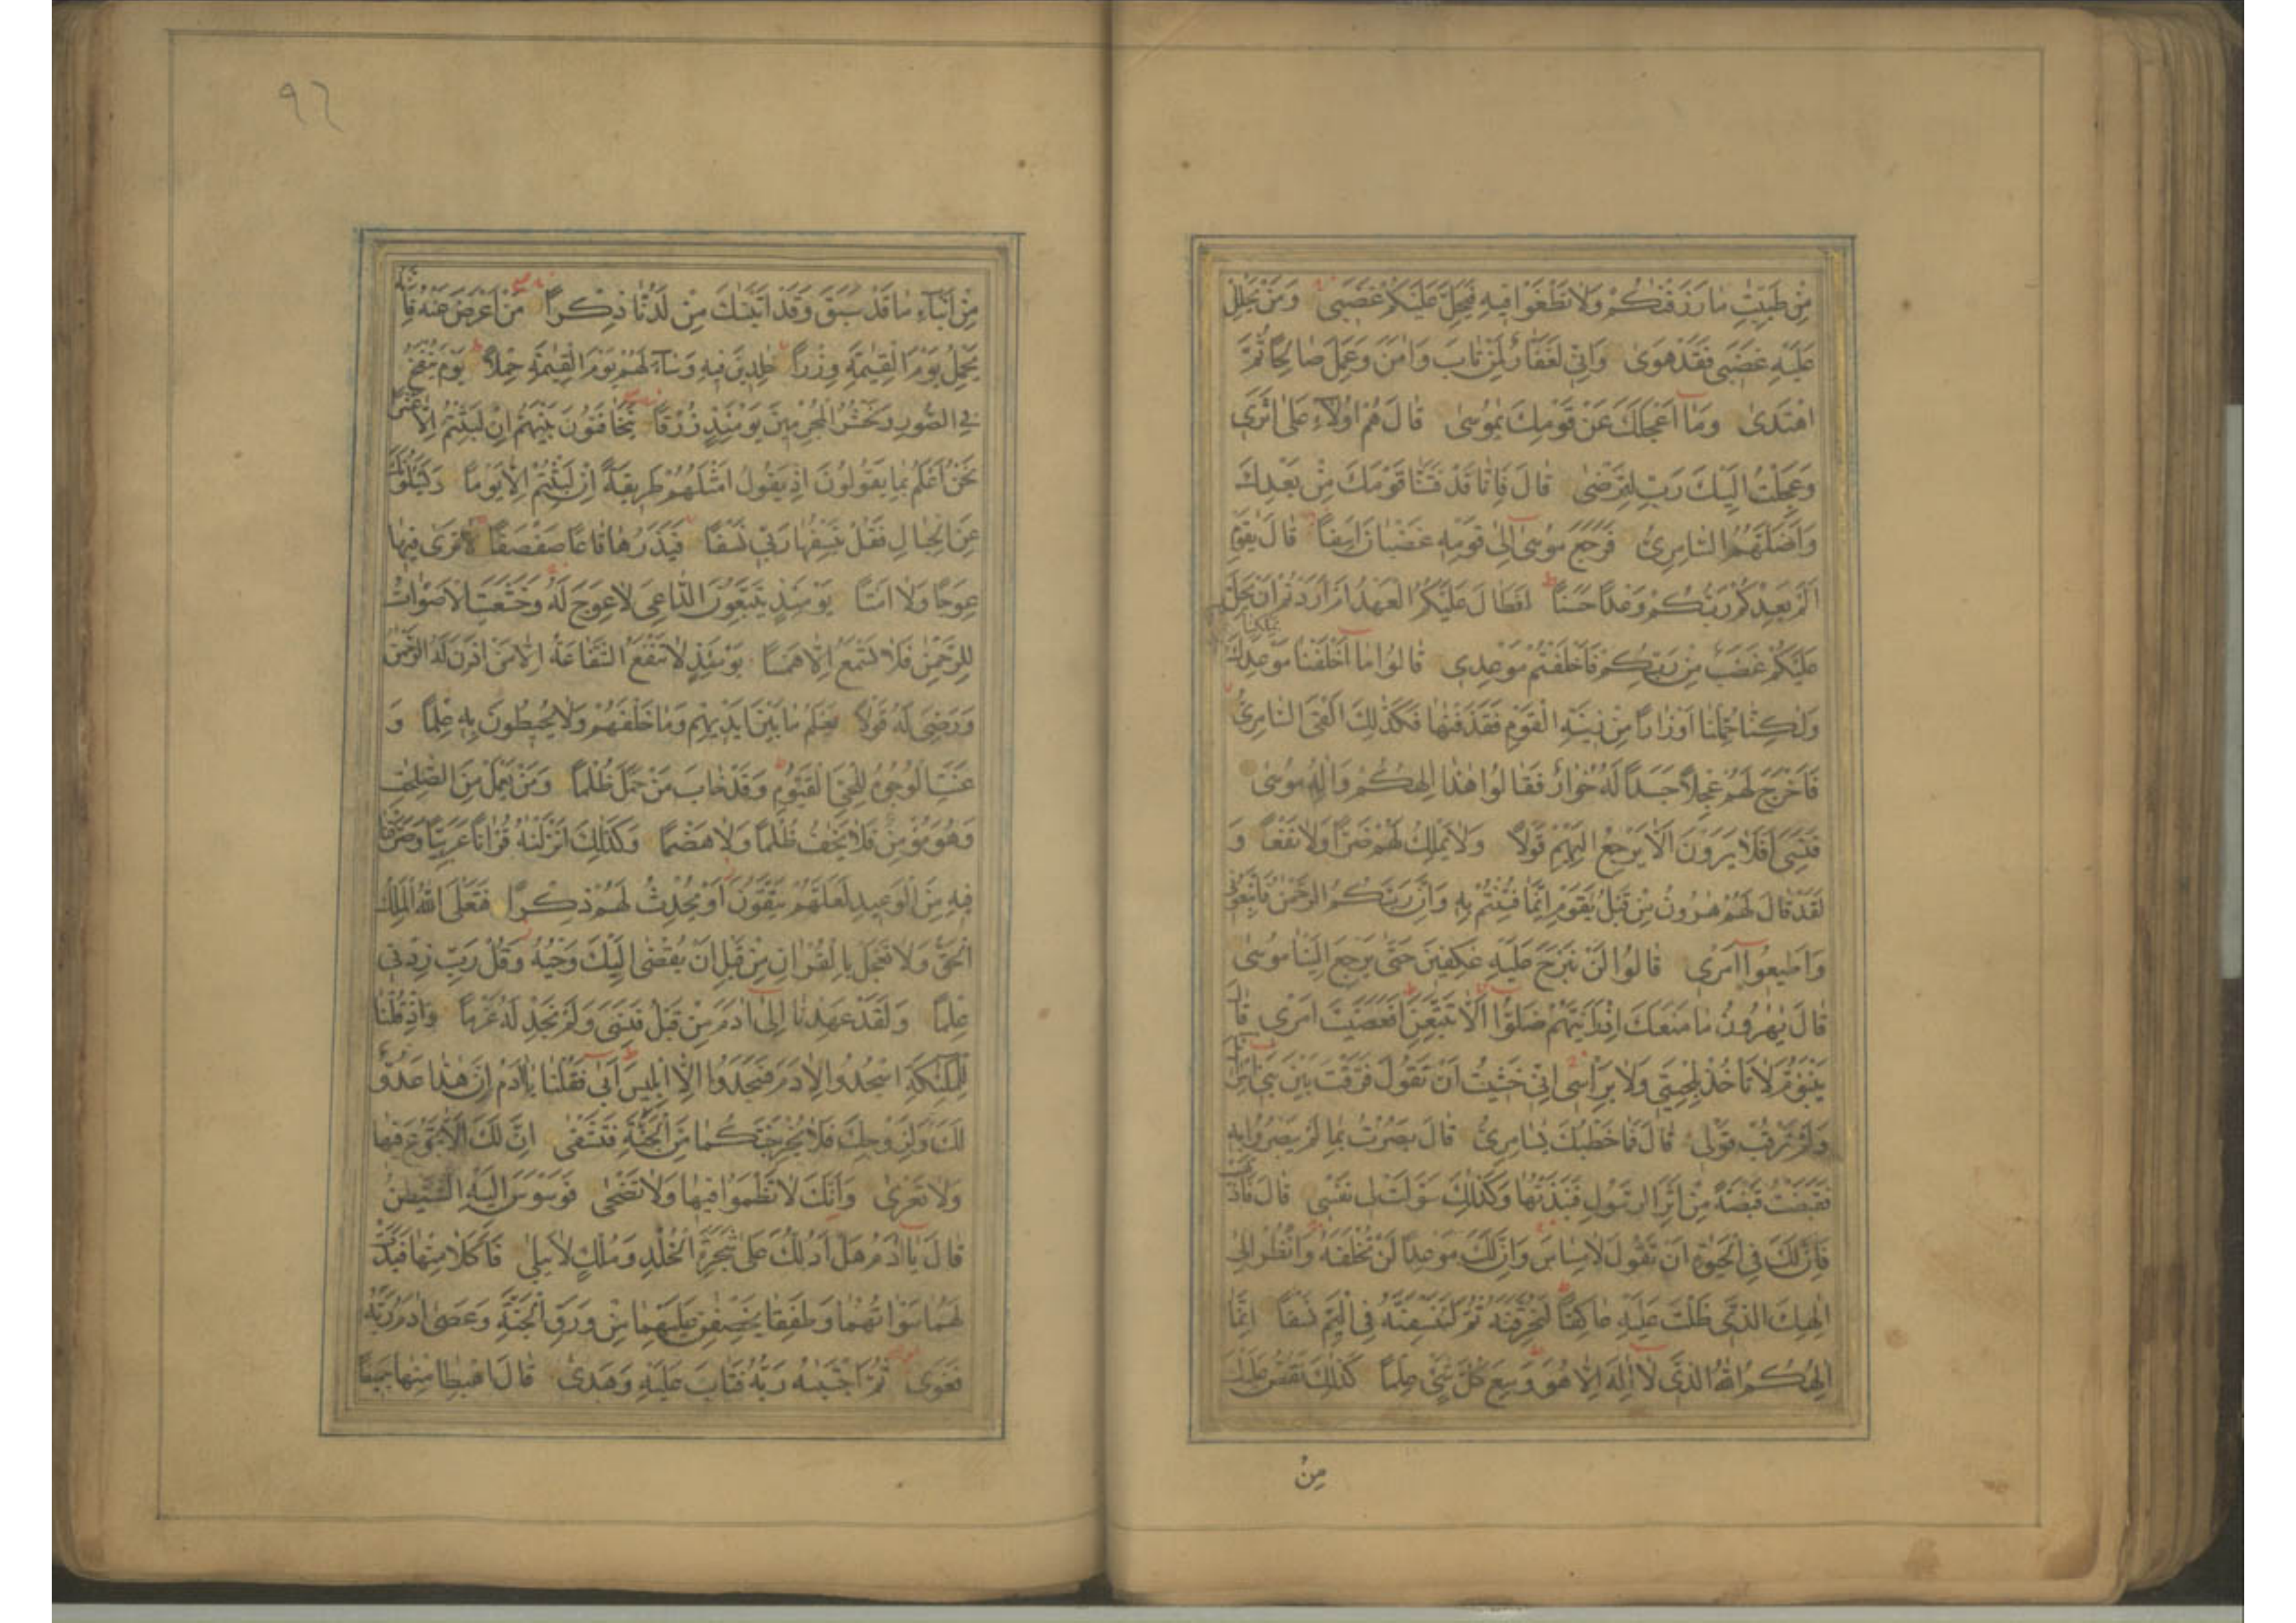 مِنْ طَيِّبٰتِ مٰا رَزَقْنٰكُمْ وَلٰا تَطْغَوْا فِيهِ فَيَحِلَّ عَلَيْكُمْ غَضَبِى وَمَنْ يَحْلِلْ
عَلَيْهِ غَضَبِى فَقَدْ هَوىٰ وَاِنِّى لَغَفّٰارٌ لِمَنْ تٰابَ وَاٰمَنَ وَعَمِلَ صٰالِحًا ثُمَّ
اهْتَدىٰ وَمٰا اَعْجَلَكَ عَنْ قَوْمِكَ يٰمُوسىٰ قٰالَ هُمْ اُولٰاءِ عَلىٰ اَثَرِى
وَعَجِلْتُ اِلَيْكَ رَبِّ لِتَرْضىٰ قٰالَ فَاِنّٰا قَدْ فَتَنّٰا قَوْمَكَ مِنْ بَعْدِكَ
وَاَضَلَّهُمُ السّٰامِرِىُّ فَرَجَعَ مُوسىٰ اِلىٰ قَوْمِهِ غَضْبٰانَ اَسِفًا قٰالَ يٰقَوْمِ
اَلَمْ يَعِدْكُمْ رَبُّكُمْ وَعْدًا حَسَنًا اَفَطٰالَ عَلَيْكُمُ الْعَهْدُ اَمْ اَرَدْتُمْ اَنْ يَحِلَّ
عَلَيْكُمْ غَضَبٌ مِنْ رَبِّكُمْ فَاَخْلَفْتُمْ مَوْعِدِى قٰالُوا مٰا اَخْلَفْنٰا مَوْعِدَكَ بِمَلْكِنٰا
وَلٰكِنّٰا حُمِّلْنٰا اَوْزٰارًا مِنْ زِينَةِ الْقَوْمِ فَقَذَفْنٰهٰا فَكَذٰلِكَ اَلْقَى السّٰامِرِىُّ
فَاَخْرَجَ لَهُمْ عِجْلًا جَسَدًا لَهُ خُوٰارٌ فَقٰالُوا هٰذٰا اِلٰهُكُمْ وَاِلٰهُ مُوسىٰ
فَنَسِىَ اَفَلٰا يَرَوْنَ اَلّٰا يَرْجِعُ اِلَيْهِمْ قَوْلًا وَلٰا يَمْلِكُ لَهُمْ ضَرًّا وَلٰا نَفْعًا وَ
لَقَدْ قٰالَ لَهُمْ هٰرُونُ مِنْ قَبْلُ يٰقَوْمِ اِنَّمٰا فُتِنْتُمْ بِهِ وَاِنَّ رَبَّكُمُ الرَّحْمٰنُ فَاتَّبِعُونِى
وَاَطِيعُوا اَمْرِى قٰالُوا لَنْ نَبْرَحَ عَلَيْهِ عٰكِفِينَ حَتّىٰ يَرْجِعَ اِلَيْنٰا مُوسىٰ
قٰالَ يٰهٰرُونُ مٰا مَنَعَكَ اِذْ رَاَيْتَهُمْ ضَلُّوا اَلّٰا تَتَّبِعَنِ اَفَعَصَيْتَ اَمْرِى قٰالَ
يَبْنَؤُمَّ لٰا تَاْخُذْ بِلِحْيَتِى وَلٰا بِرَاْسِى اِنِّى خَشِيتُ اَنْ تَقُولَ فَرَّقْتَ بَيْنَ بَنِى اِسْرٰائِيلَ
وَلَمْ تَرْقُبْ قَوْلِى قٰالَ فَمٰا خَطْبُكَ يٰسٰامِرِىُّ قٰالَ بَصُرْتُ بِمٰا لَمْ يَبْصُرُوا بِهِ
فَقَبَضْتُ قَبْضَةً مِنْ اَثَرِ الرَّسُولِ فَنَبَذْتُهٰا وَكَذٰلِكَ سَوَّلَتْ لِى نَفْسِى قٰالَ فَاذْهَبْ
فَاِنَّ لَكَ فِى الْحَيٰوةِ اَنْ تَقُولَ لٰا مِسٰاسَ وَاِنَّ لَكَ مَوْعِدًا لَنْ تُخْلَفَهُ وَانْظُرْ اِلىٰ
اِلٰهِكَ الَّذِى ظَلْتَ عَلَيْهِ عٰاكِفًا لَنُحَرِّقَنَّهُ ثُمَّ لَنَنْسِفَنَّهُ فِى الْيَمِّ نَسْفًا اِنَّمٰا
اِلٰهُكُمُ اللّٰهُ الَّذِى لٰا اِلٰهَ اِلّٰا هُوَ وَسِعَ كُلَّ شَىْءٍ عِلْمًا كَذٰلِكَ نَقُصُّ عَلَيْكَ
مِنْ
٩٦
مِنْ اَنْبٰاءِ مٰا قَدْ سَبَقَ وَقَدْ اٰتَيْنٰكَ مِنْ لَدُنّٰا ذِكْرًا مَنْ اَعْرَضَ عَنْهُ فَاِنَّهُ
يَحْمِلُ يَوْمَ الْقِيٰمَةِ وِزْرًا خٰلِدِينَ فِيهِ وَسٰاءَ لَهُمْ يَوْمَ الْقِيٰمَةِ حِمْلًا يَوْمَ يُنْفَخُ
فِى الصُّورِ وَنَحْشُرُ الْمُجْرِمِينَ يَوْمَئِذٍ زُرْقًا يَتَخٰافَتُونَ بَيْنَهُمْ اِنْ لَبِثْتُمْ اِلّٰا عَشْرًا
نَحْنُ اَعْلَمُ بِمٰا يَقُولُونَ اِذْ يَقُولُ اَمْثَلُهُمْ طَرِيقَةً اِنْ لَبِثْتُمْ اِلّٰا يَوْمًا وَيَسْئَلُونَكَ
عَنِ الْجِبٰالِ فَقُلْ يَنْسِفُهٰا رَبِّى نَسْفًا فَيَذَرُهٰا قٰاعًا صَفْصَفًا لٰا تَرىٰ فِيهٰا
عِوَجًا وَلٰا اَمْتًا يَوْمَئِذٍ يَتَّبِعُونَ الدّٰاعِىَ لٰا عِوَجَ لَهُ وَخَشَعَتِ الْاَصْوٰاتُ
لِلرَّحْمٰنِ فَلٰا تَسْمَعُ اِلّٰا هَمْسًا يَوْمَئِذٍ لٰا تَنْفَعُ الشَّفٰاعَةُ اِلّٰا مَنْ اَذِنَ لَهُ الرَّحْمٰنُ
وَرَضِىَ لَهُ قَوْلًا يَعْلَمُ مٰا بَيْنَ اَيْدِيهِمْ وَمٰا خَلْفَهُمْ وَلٰا يُحِيطُونَ بِهِ عِلْمًا وَ
عَنَتِ الْوُجُوهُ لِلْحَىِّ الْقَيُّومِ وَقَدْ خٰابَ مَنْ حَمَلَ ظُلْمًا وَمَنْ يَعْمَلْ مِنَ الصّٰلِحٰتِ
وَهُوَ مُؤْمِنٌ فَلٰا يَخٰفُ ظُلْمًا وَلٰا هَضْمًا وَكَذٰلِكَ اَنْزَلْنٰهُ قُرْاٰنًا عَرَبِيًّا وَصَرَّفْنٰا
فِيهِ مِنَ الْوَعِيدِ لَعَلَّهُمْ يَتَّقُونَ اَوْ يُحْدِثُ لَهُمْ ذِكْرًا فَتَعٰلَى اللّٰهُ الْمَلِكُ
الْحَقُّ وَلٰا تَعْجَلْ بِالْقُرْاٰنِ مِنْ قَبْلِ اَنْ يُقْضىٰ اِلَيْكَ وَحْيُهُ وَقُلْ رَبِّ زِدْنِى
عِلْمًا وَلَقَدْ عَهِدْنٰا اِلىٰ اٰدَمَ مِنْ قَبْلُ فَنَسِىَ وَلَمْ نَجِدْ لَهُ عَزْمًا وَاِذْ قُلْنٰا
لِلْمَلٰئِكَةِ اسْجُدُوا لِاٰدَمَ فَسَجَدُوا اِلّٰا اِبْلِيسَ اَبىٰ فَقُلْنٰا يٰا اٰدَمُ اِنَّ هٰذٰا عَدُوٌّ
لَكَ وَلِزَوْجِكَ فَلٰا يُخْرِجَنَّكُمٰا مِنَ الْجَنَّةِ فَتَشْقىٰ اِنَّ لَكَ اَلّٰا تَجُوعَ فِيهٰا
وَلٰا تَعْرىٰ وَاَنَّكَ لٰا تَظْمَؤُا فِيهٰا وَلٰا تَضْحىٰ فَوَسْوَسَ اِلَيْهِ الشَّيْطٰنُ
قٰالَ يٰا اٰدَمُ هَلْ اَدُلُّكَ عَلىٰ شَجَرَةِ الْخُلْدِ وَمُلْكٍ لٰا يَبْلىٰ فَاَكَلٰا مِنْهٰا فَبَدَتْ
لَهُمٰا سَوْاٰتُهُمٰا وَطَفِقٰا يَخْصِفٰنِ عَلَيْهِمٰا مِنْ وَرَقِ الْجَنَّةِ وَعَصىٰ اٰدَمُ رَبَّهُ
فَغَوىٰ ثُمَّ اجْتَبٰهُ رَبُّهُ فَتٰابَ عَلَيْهِ وَهَدىٰ قٰالَ اهْبِطٰا مِنْهٰا جَمِيعًا